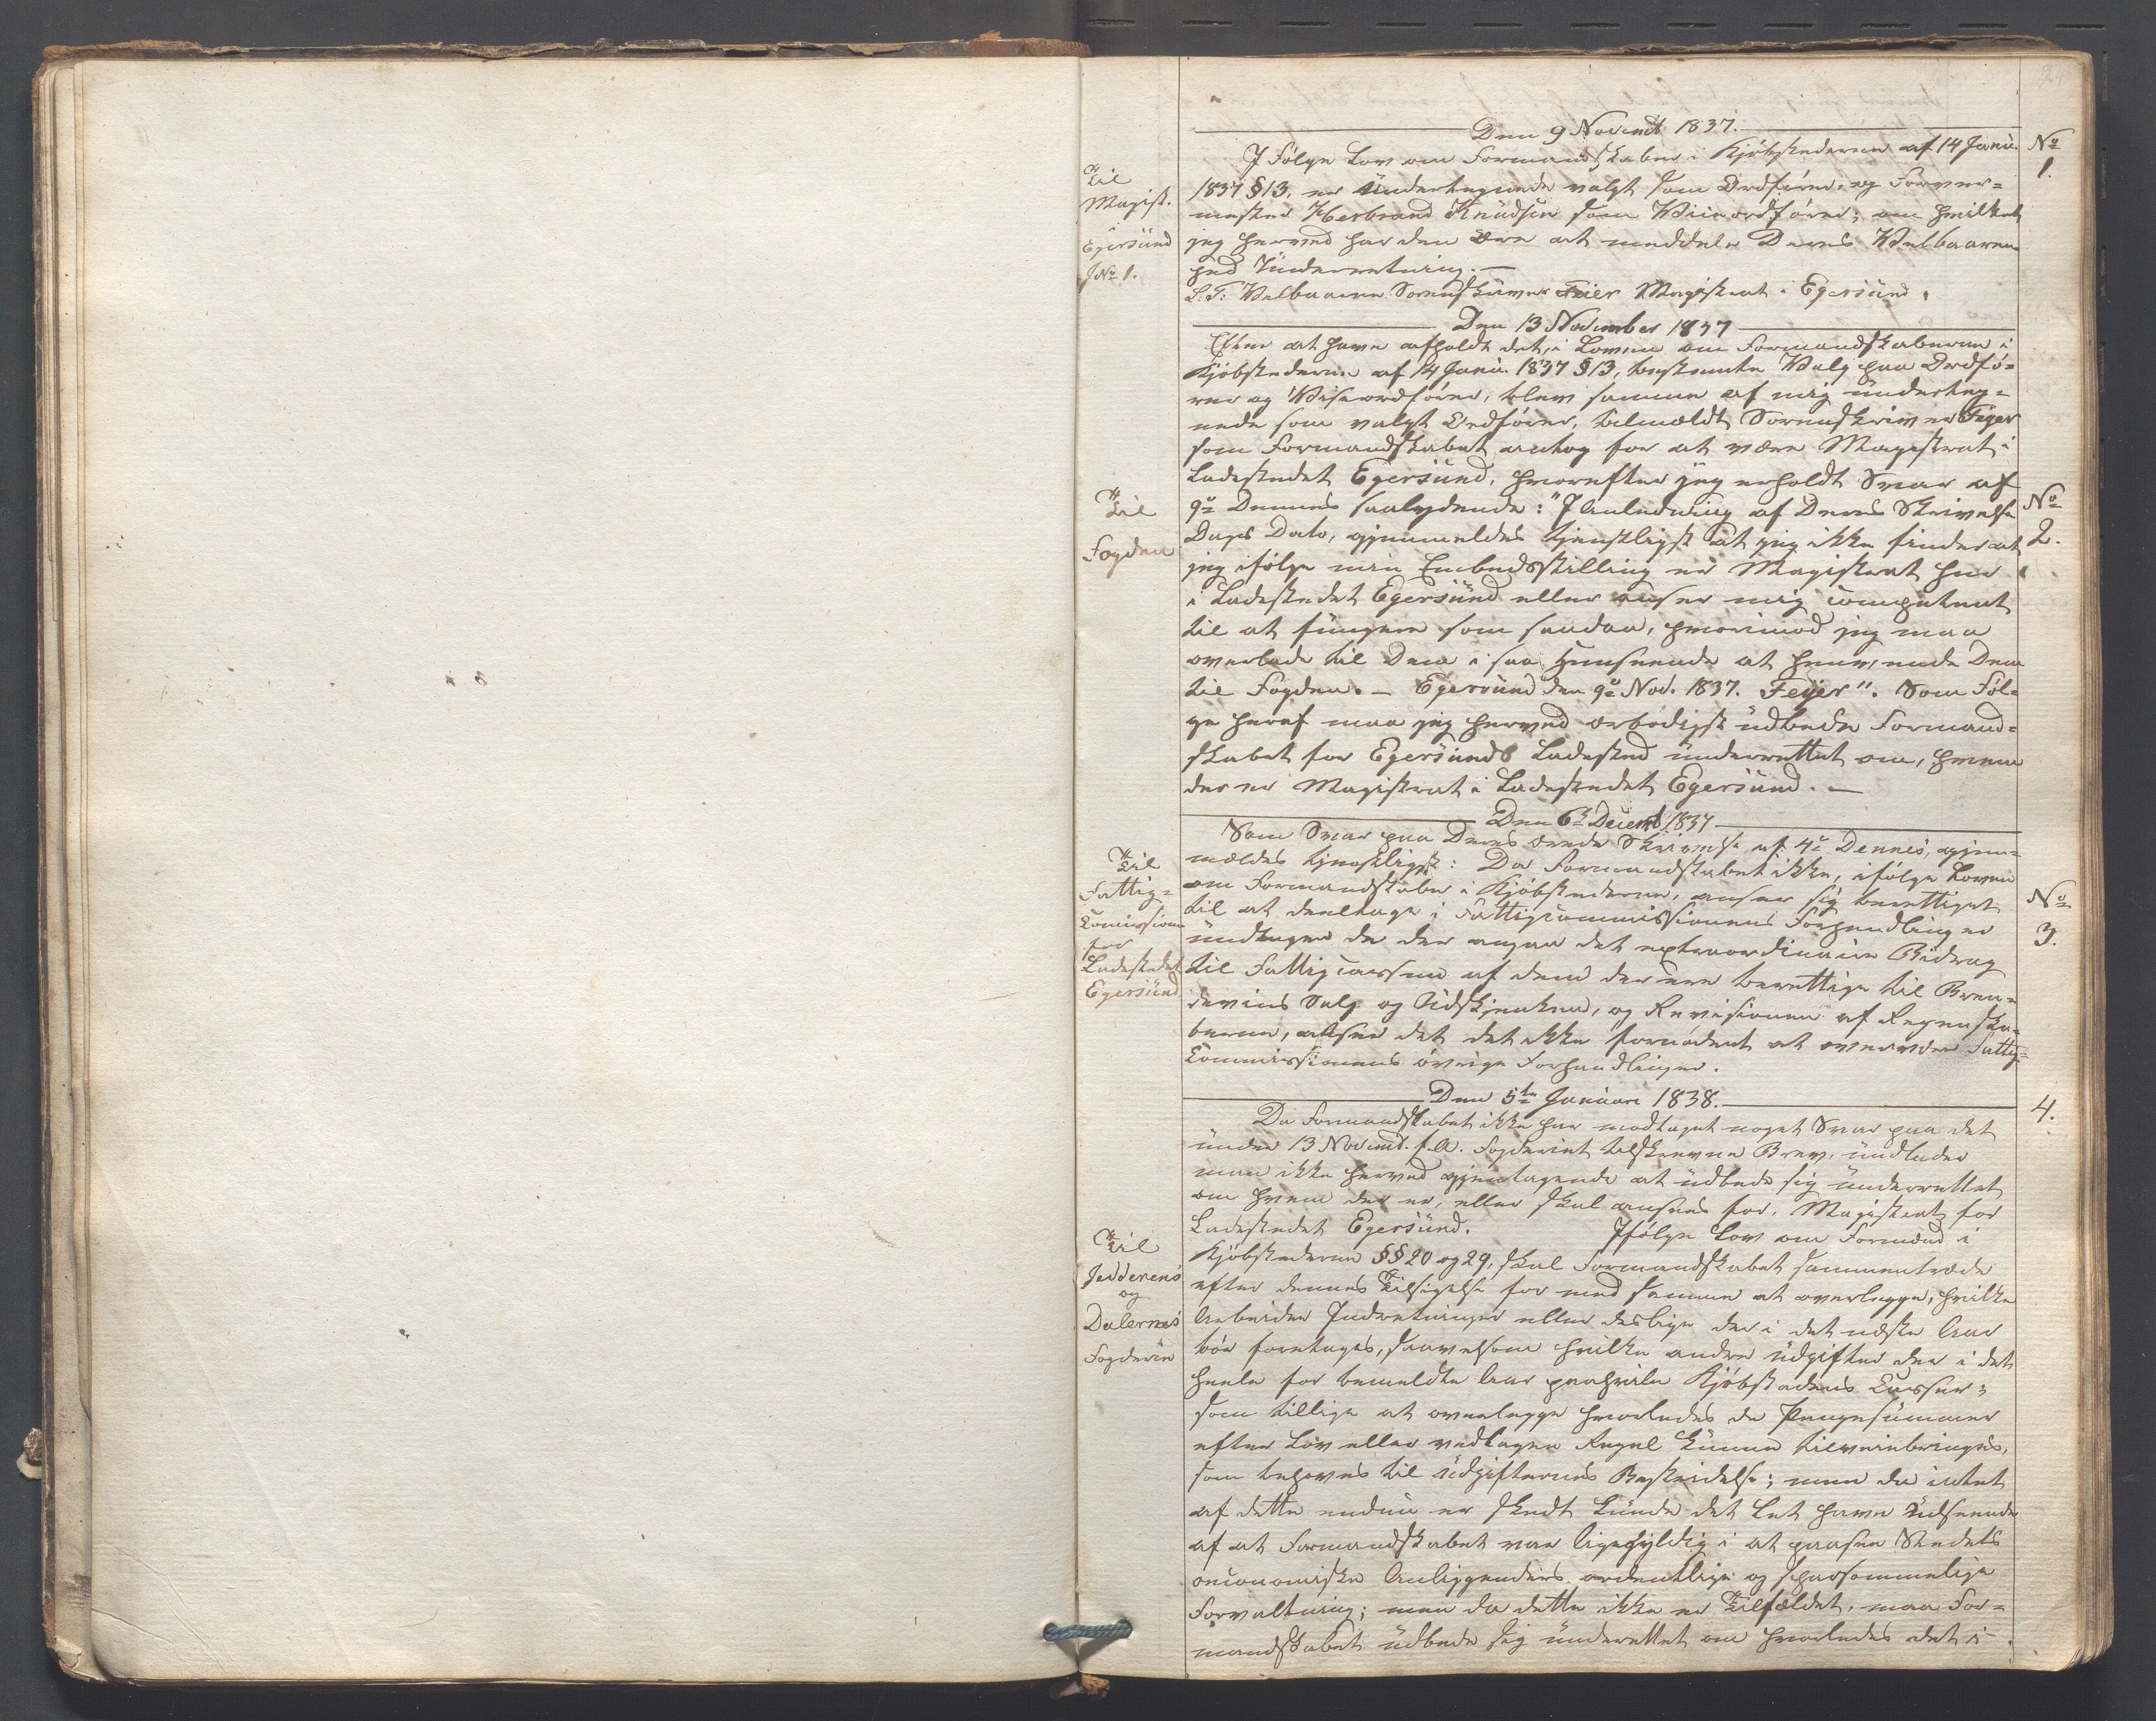 24
Den 9 Novemb 1837.
Til
Magist.
Egersund
J No 1.
No
1.
I Følge Lov om Formandskaber i Kjøbstederne af 14 Janu.
1837 §13, er Undertegnede valgt som Ordfører, og Farver-
mester Herbrand Knudsen som Viceordfører; om hvilket
jeg herved har den ære at meddele Deres Velbaaren-
hed Underretning. —
S. T. Velbaarne Sorenskriver Feier Magistrat i Egersund.
Den 13 November 1837
Til
Fogden
No
2.
Efter at have afholdt det, i Loven om Formandskaberne i
Kjøbstederne af 14 Janu. 1837 §13, bestemte Valg paa Ordfø-
rer og Viseordfører, blev samme af mig underteg-
nede som valgt Ordfører, tilmældt Sorenskriver Feyer
som Formandskabet antog for at være Magistrat i
Ladestedet Egersund, hvorefter jeg erholdt Svar af
9de Dennes saalydende: "I Anledning af Deres Skrivelse
Dags Dato, gjenmeldes tjenstligst at jeg ikke finder at
jeg ifølge min Embedsstilling er Magistrat her
i Ladestedet Egersund eller anser mig competent
til at fungere som saadan, hvorimod jeg maa
overlade til Dem i saa Henseende at henvende Dem
til Fogden. — Egersund den 9de Nov. 1837. Feyer". Som Føl-
ge heraf maa jeg herved ærbødigst udbede Formand-
skabet for Egersunds Ladested underrettet om, hvem
der er Magistrat i Ladestedet Egersund. —
Den 6te Decemb 1837
Til
Fattig-
Comissionen
for
Ladestedet
Egersund
No
3.
Som Svar paa Deres ærede Skrivelse af 4de Dennes, gjen-
mældes tjenstligst: Da Formandskabet ikke, ifølge Loven
om Formandskaber i Kjøbstederne, anser sig berettiget
til at deeltage i Fattigcommissionens Forhandlinger
undtagen de der angaa det extraordinaire Bidrag
til Fattigcassen af dem der ere berettige til Bren-
deviins Salg og Udskjenken, og Revisionen af Regenska-
berne, ansees det det ikke fornødent at overvære Fattig-
Commissionens øvrige Forhandlinger.
Den 5te Januari 1838.
Til
Jedderens
og
Dalernes
Fogderie
4.
Da Formandskabet ikke har modtaget noget Svar paa det
under 13 Novemb. f. A. Fogderiet tilskrevne Brev, undlader
man ikke herved gjentagende at udbede sig underrettet
om hvem der er, eller skal ansees for, Magistrat for
Ladestedet Egersund. Ifølge Lov om Formænd i
Kjøbstederne §§ 20 og 29, skal Formandskabet sammentræde
efter dennes Tilsigelse for med samme at overlegge, hvilke
Arbeider Indretninger eller deslige der i det næste Aar
bør foretages, saavelsom hvilke andre Udgifter der i det
heele for bemeldte Aar paahvile Kjøbstadens Casser;
som tillige at overlegge hvorledes de Pengesummer
efter Lov eller vedtagen Regel kunne tilveiebringes,
som behøves til Udgifternes Bestridelse; men da intet
af dette endnu er skedt kunde det let have Udseende
af at Formandskabet var ligegyldig i at paasee Stedets
oeconomiske Anliggenders ordentlige og sparsommelige
Forvaltning; men da dette ikke er Tilfældet, maa For-
mandskabet udbede sig underettet om hvorledes det i